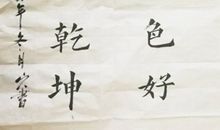 色好
乾坤
年冬月
书